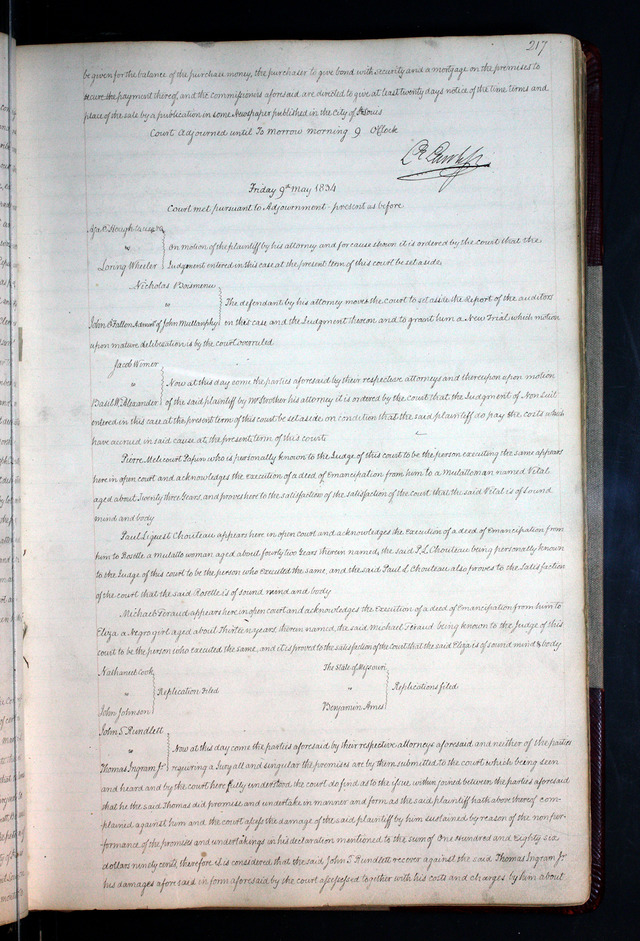 217
be given for the balance of the purchase money, the purchaser to give bond with security and a mortgage on the premises to
secure the payment thereof, and the commissioners aforesaid are directed to give at least twenty days notice of the time terms and
place of the sale by a publication in some Newspaper published in the City of St Louis
Court Adjourned until To Morrow morning 9 O'Clock
Friday 9th May 1834
Court met pursuant to Adjournment - present as before
"
Loring Wheeler
On motion of the plaintiff by his attorney and for cause shown it is ordered by the court that the
Judgment entered in this case at the present term of this court be set aside,
Nicholas Boismenu
"
John O Fallon Admr of John Mullanphy
The defendant by his attorney moves the court to set aside the Report of the auditors
in this case and the Judgment thereon and to grant him a New Trial which motion
upon mature deliberation is by the court overruled
Jacob Wimer
"
Basil W. Alexander
Now at this day come the parties aforesaid by their respective attorneys and thereupon upon motion
of the said plaintiff by Mr Strother his attorney it is ordered by the Court that the Judgment of Non Suit
entered in this case at the present term of this court be set aside, on condition that the said plaintiff do pay the costs which
have accrued in said cause at the present term of this court
Pierre Melicourt Papin who is personally known to the Judge of this court to be the person executing the same appears
here in open court and acknowledges the execution of a deed of Emancipation from him to a Mulatto man named Vital
aged about Twenty three Years, and proves here to the satisfaction of the satisfaction of the court that the said Vital is of Sound
mind and body
Paul Liguest Chouteau appears here in open court and acknowledges the execution of a deed of emancipation from
him to Rosette a mulatto woman aged about fourty two years therein named, the said P. L. Chouteau being personally known
to the Judge of this court to be the person who executed the same, and the said Paul L Chouteau also proves to the Satisfaction
of the court that the said Rosette is of sound mind and body
Michael Feraud appears here in open court and acknowledges the Execution of a deed of Emancipation from him to
Eliza a Negro girl aged about Thirteen years, therein named, the said Michael Feraud being known to the Judge of this
court to be the person who executed the same, and it is proved to the satisfaction of the court that the said Eliza is of sound mind & body
Nathaniel Cook
"
John Johnson
Replication Filed
The State of Missouri
"
Benjamin Ames
Replications filed
John S. Rundlett
"
Thomas Ingram Jr
Now at this day come the parties aforesaid by their respective attorneys aforesaid and neither of the parties
requiring a Jury all and singular the premises are by them submitted to the court which being seen
and heard and by the court here fully understood the court do find as to the issue within joined between the parties aforesaid
that he the said Thomas did promise and undertake in manner and form as the said plaintiff hath above thereof com-
plained against him and the court assess the damage of the said plaintiff by him sustained by reason of the non per-
formance of the promises and undertakings in his declaration mentioned to the sum of One Hundred and Eighty six
dollars ninety cents, therefore it is considered that the said John S Rundlett recover against the said Thomas Ingram Jr
his damages aforesaid in form aforesaid by the court assessed together with his costs and charges by him about